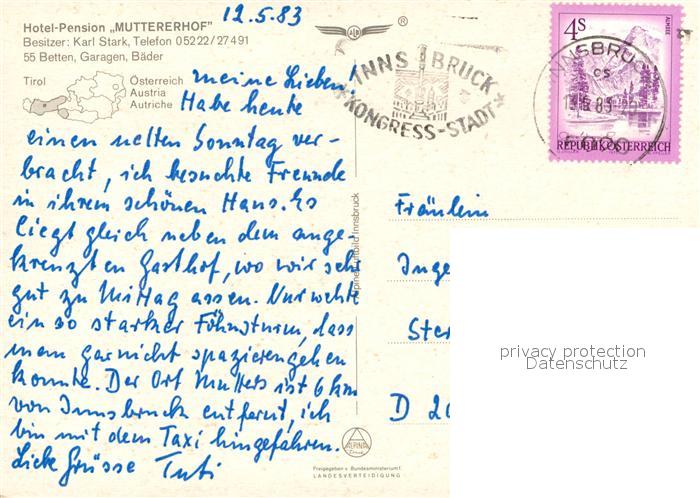 12.5.83
Hotel-Pension „MUTTERERHOF"
Besitzer: Karl Stark, Telefon 05222/27491
55 Betten, Garagen, Bäder
Tirol
Österreich
Austria
Autriche
ALB
®
INNSBRUCK
KONGRESS-STADT
4S
ALMSEE
REPUBLIK ÖSTERREICH
INNSBRUCK
cs
83
meine Lieben!
Habe heute
einen netten Sonntag ver-
bracht, ich besuchte Freunde
in ihrem schönen Haus. Es
liegt gleich neben dem ange-
kreuzten Gasthof, wo wir sehr
gut zu Mittag assen. Nur wehte
ein so starker Föhnsturm, dass
man garnicht spazierengehen
konnte. Der Ort Mutters ist 6 km
von Innsbruck entfernt, ich
bin mit dem Taxi hingefahren.
Liebe Grüsse Tuti
Alpine Luftbild Innsbruck
Fräulein
Inge
Ster
D 20
privacy protection
Datenschutz
ALPINA
Druck
Freigegeben v. Bundesministerium f.
LANDESVERTEIDIGUNG